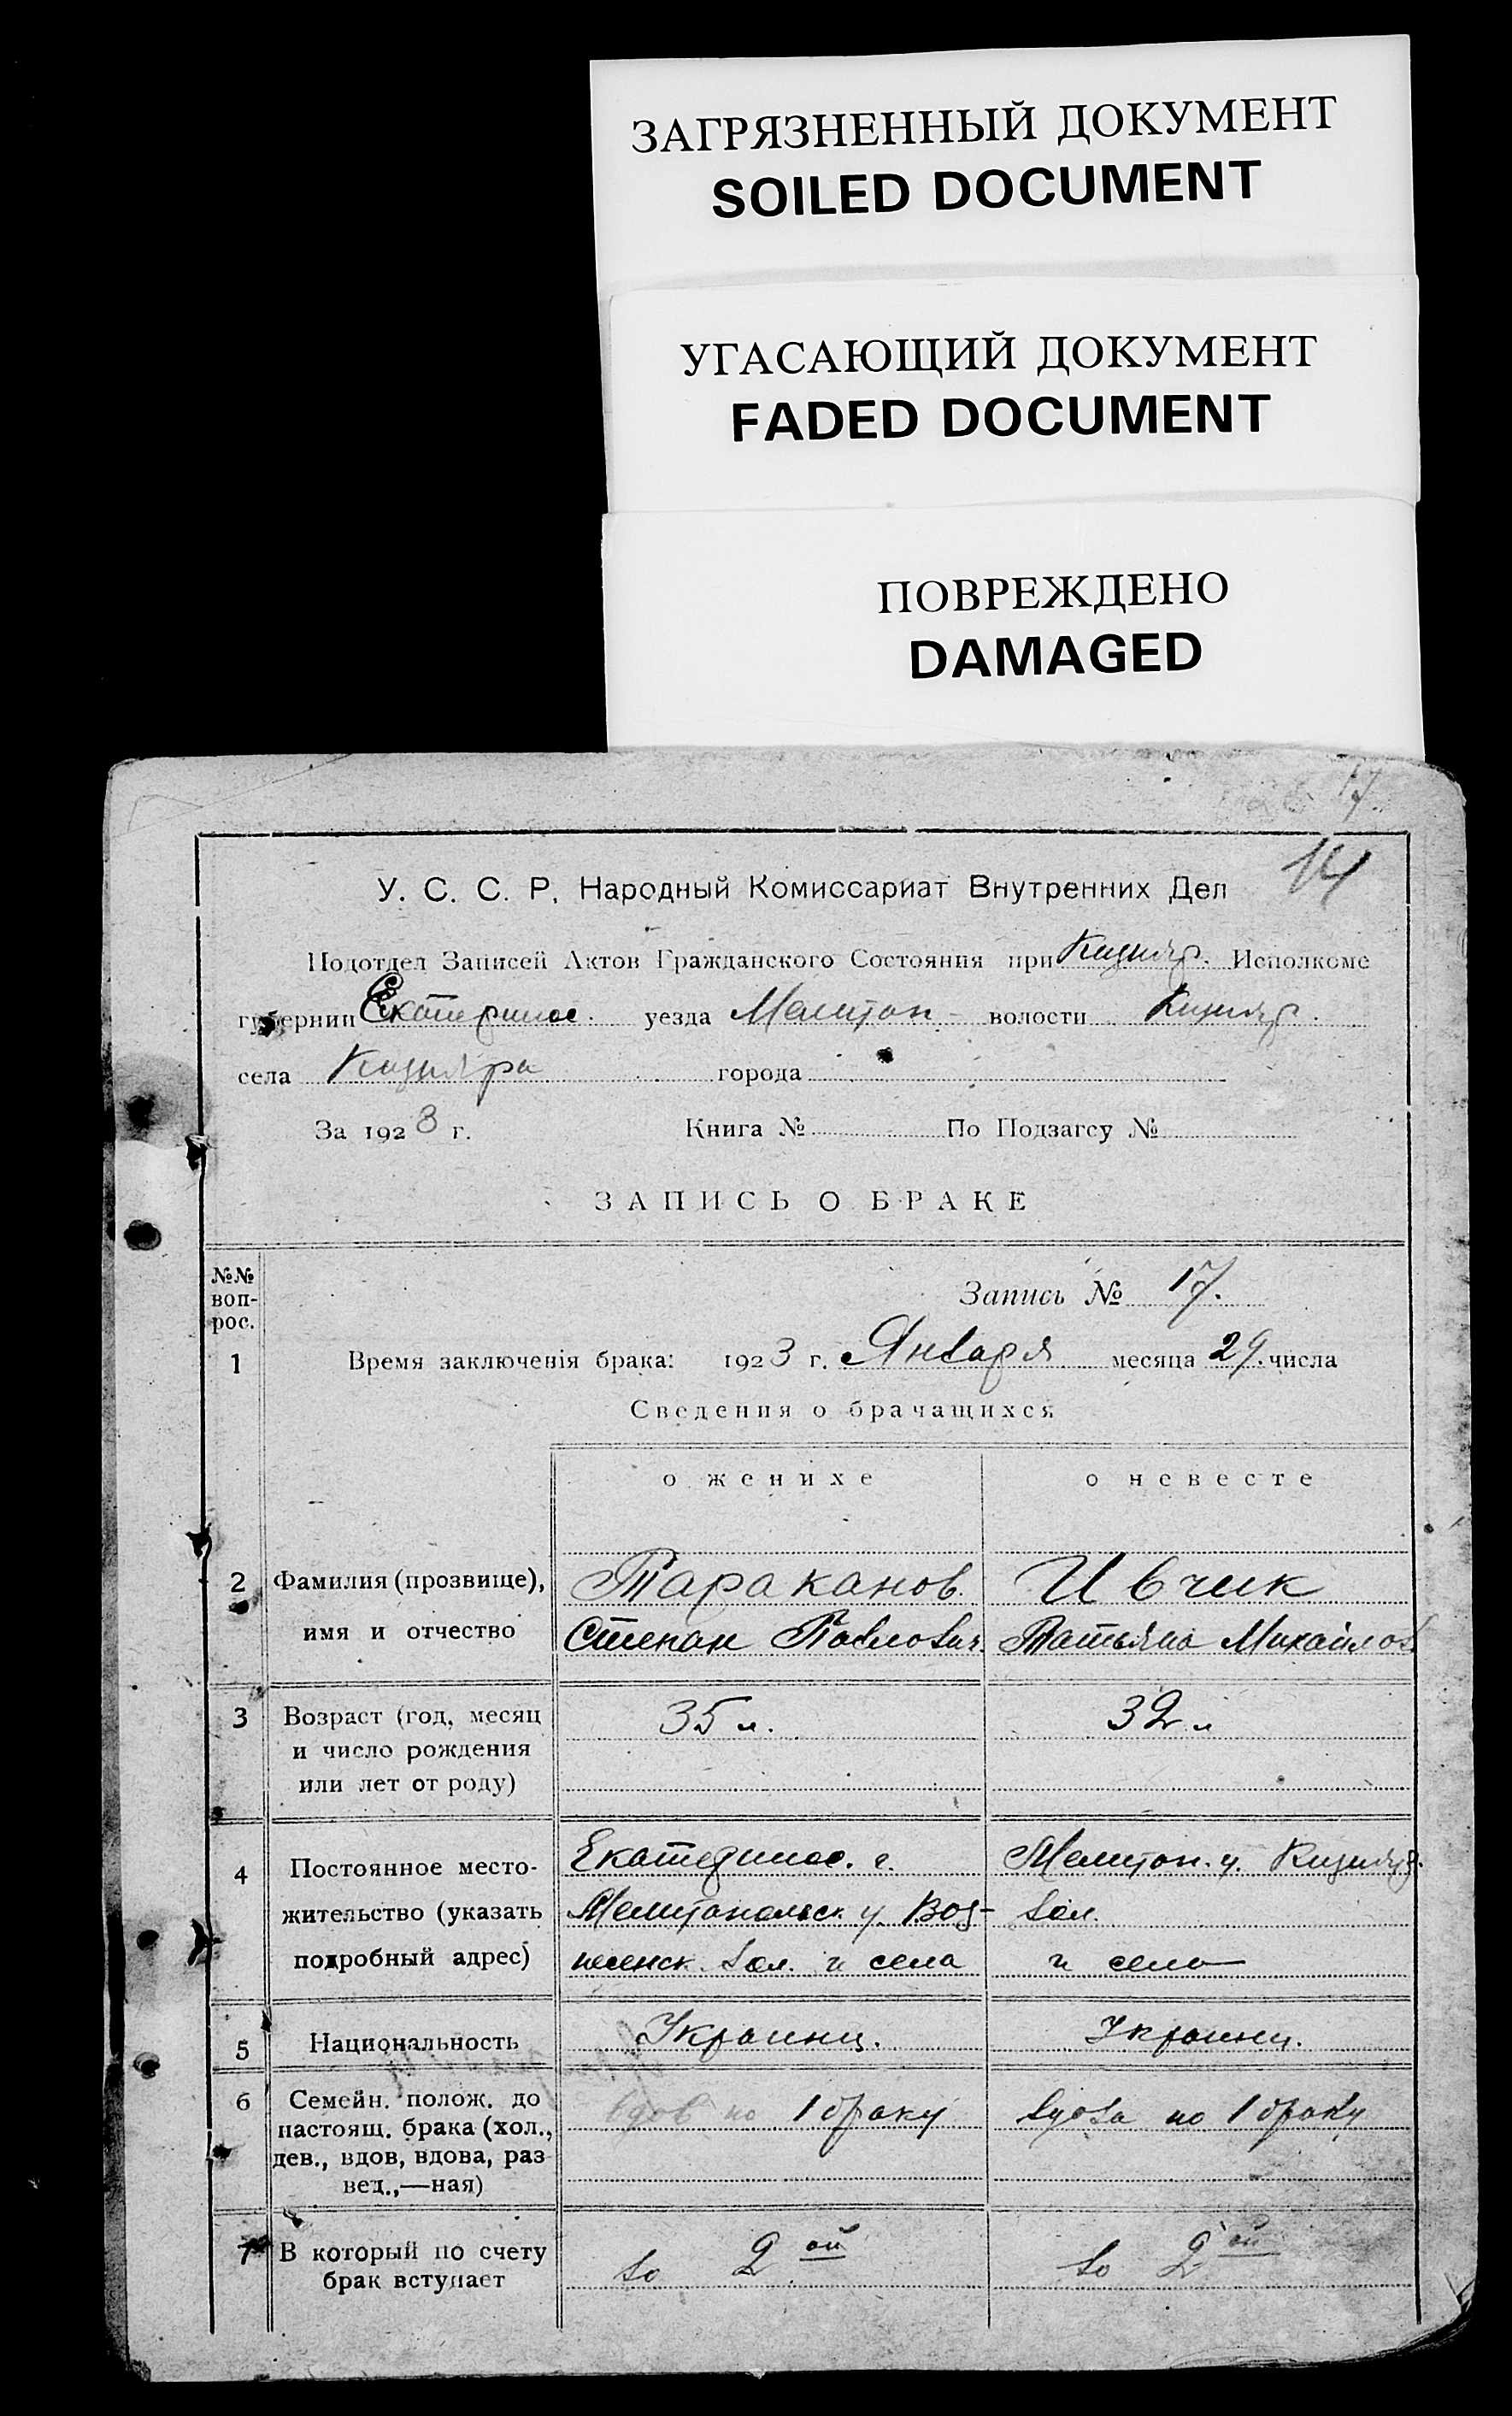 ЗАГРЯЗНЕННЫЙ ДОКУМЕНТ
SOILED DOCUMENT
УГАСАЮЩИЙ ДОКУМЕНТ
FADED DOCUMENT
ПОВРЕЖДЕНО
DAMAGED
17.
14
У. С. С. Р. Народный Комиссариат Внутренних Дел
Подотдел Записей Актов Гражданского Состояния при Кизияр. Исполкоме
губернии Екатеринос. уезда Мелитоп - волости Кизияр.
села Кизияра города
За 1923 г. Книга № По Подзагсу №
ЗАПИСЬ О БРАКЕ
№№ воп-рос.
Запись № 17.
1 Время заключенія брака: 1923 г. Января месяца 29. числа
Сведения о брачащихся
о женихе о невесте
2 Фамилия (прозвище), Тараканов. Ивчик
имя и отчество Степан Павлович. Татьяна Михайлов
3 Возраст (год, месяц 35 л. 32 л
и число рождения
или лет от роду)
4 Постоянное место- Екатеринос. г. Мелитоп. у. Кизияр.
жительство (указать Мелитопольск у. Воз- вол.
подробный адрес) несенск. вол. и села и села
5 Национальность Украинц. Украинц.
6 Семейн. полож. до вдов по 1 браку вдова по 1 браку
настоящ. брака (хол.,
дев., вдов, вдова, раз-
вед.,—ная)
7 В который по счету во 2ой во 2ой
брак вступает